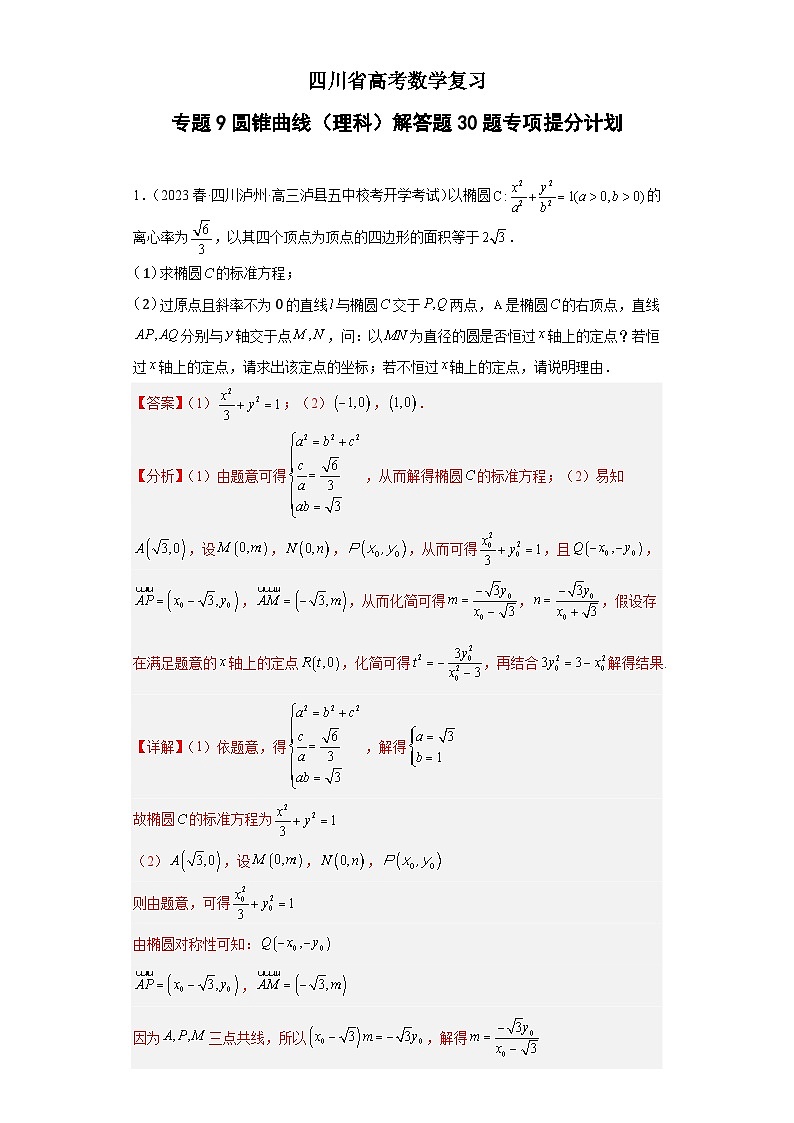 四川省高考数学复习
专题 9 圆锥曲线（理科）解答题 30 题专项提分计划
1.（2023 春·四川泸州·高三泸县五中校考开学考试）以椭圆 C : x²/a² + y²/b² = 1(a > 0, b > 0) 的
离心率为 √6/3，以其四个顶点为顶点的四边形的面积等于 2√3．
（1）求椭圆 C 的标准方程；
（2）过原点且斜率不为 0 的直线 l 与椭圆 C 交于 P,Q 两点，A 是椭圆 C 的右顶点，直线
AP,AQ 分别与 y 轴交于点 M,N，问：以 MN 为直径的圆是否恒过 x 轴上的定点？若恒
过 x 轴上的定点，请求出该定点的坐标；若不恒过 x 轴上的定点，请说明理由．
【答案】（1）x²/3 + y² = 1；（2）(−1,0)，(1,0)．
【分析】（1）由题意可得 { a² = b² + c², c/a = √6/3, ab = √3，从而解得椭圆 C 的标准方程；（2）易知
A(√3,0)，设 M(0,m)，N(0,n)，P(x₀,y₀)，从而可得 x₀²/3 + y₀² = 1，且 Q(−x₀,−y₀)，
AP = (x₀ − √3, y₀)，AM = (−√3, m)，从而化简可得 m = −√3y₀/(x₀ − √3)，n = −√3y₀/(x₀ + √3)，假设存
在满足题意的 x 轴上的定点 R(t,0)，化简可得 t² = − 3y₀²/(x₀² − 3)，再结合 3y₀² = 3 − x₀² 解得结果.
【详解】（1）依题意，得 { a² = b² + c², c/a = √6/3, ab = √3，解得 { a = √3, b = 1
故椭圆 C 的标准方程为 x²/3 + y² = 1
（2）A(√3,0)，设 M(0,m)，N(0,n)，P(x₀,y₀)
则由题意，可得 x₀²/3 + y₀² = 1
由椭圆对称性可知：Q(−x₀,−y₀)
AP = (x₀ − √3, y₀)，AM = (−√3, m)
因为 A,P,M 三点共线，所以 (x₀ − √3)m = −√3y₀，解得 m = −√3y₀/(x₀ − √3)